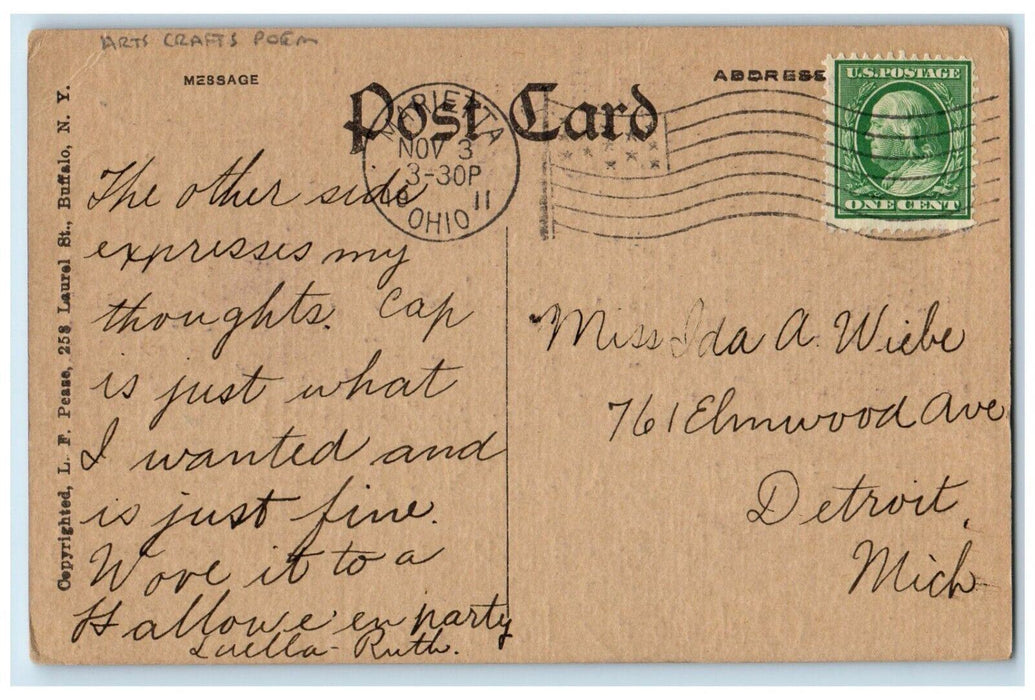 ARTS CRAFTS POEM
MESSAGE
Post Card
ADDRESS
U.S. POSTAGE
ONE CENT
MARIETTA
NOV 3
3-30P
11
OHIO
Copyrighted, L. F. Pease, 258 Laurel St., Buffalo, N. Y.
The other side
expresses my
thoughts. Cap
is just what
I wanted and
is just fine.
Wore it to a
Hallowe'en party
Luella-Ruth.
Miss Ida A. Wiebe
761 Elmwood Ave
Detroit,
Mich